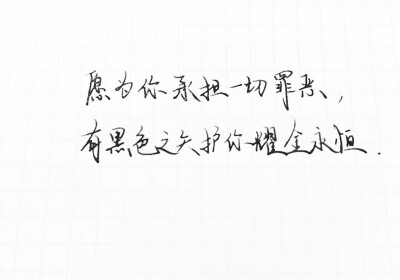 愿为你承担一切罪恶，
有黑色之矢护你耀金永恒.